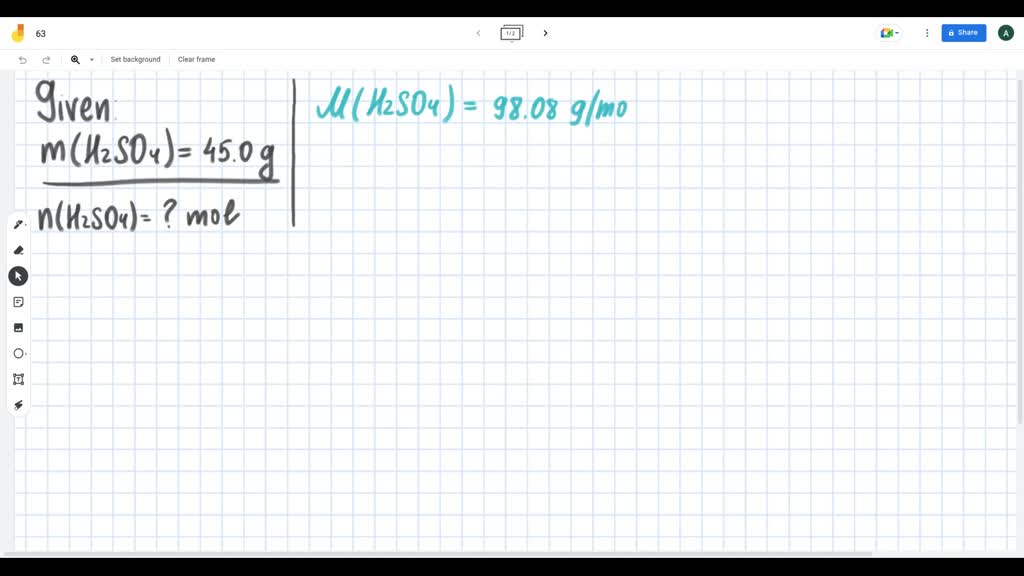 63
1/2
Share
A
Set background
Clear frame
Given:
m(H2SO4) = 45.0 g
n(H2SO4) = ? mol
M(H2SO4) = 98.08 g/mo